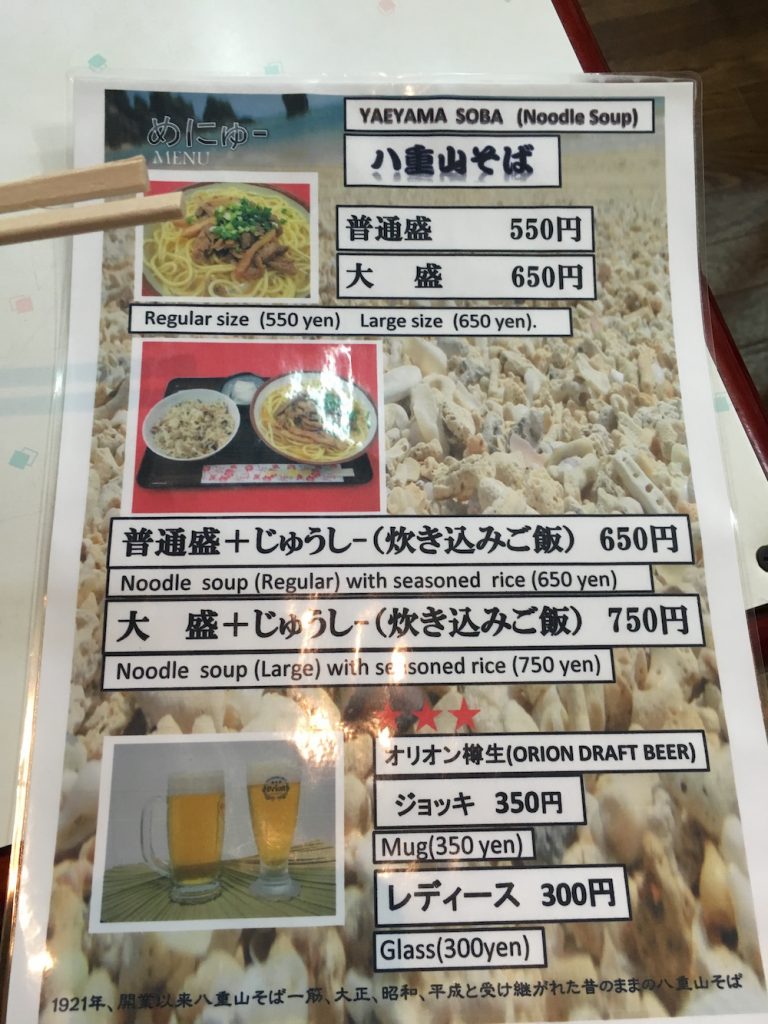 めにゅー
MENU
YAEYAMA SOBA (Noodle Soup)
八重山そば
普通盛 550円
大 盛 650円
Regular size (550 yen) Large size (650 yen).
普通盛＋じゅうしー（炊き込みご飯） 650円
Noodle soup (Regular) with seasoned rice (650 yen)
大 盛＋じゅうしー（炊き込みご飯） 750円
Noodle soup (Large) with seasoned rice (750 yen)
★★★
オリオン樽生(ORION DRAFT BEER)
ジョッキ 350円
Mug(350 yen)
レディース 300円
Glass(300yen)
Orion
1921年、開業以来八重山そば一筋、大正、昭和、平成と受け継がれた昔のままの八重山そば